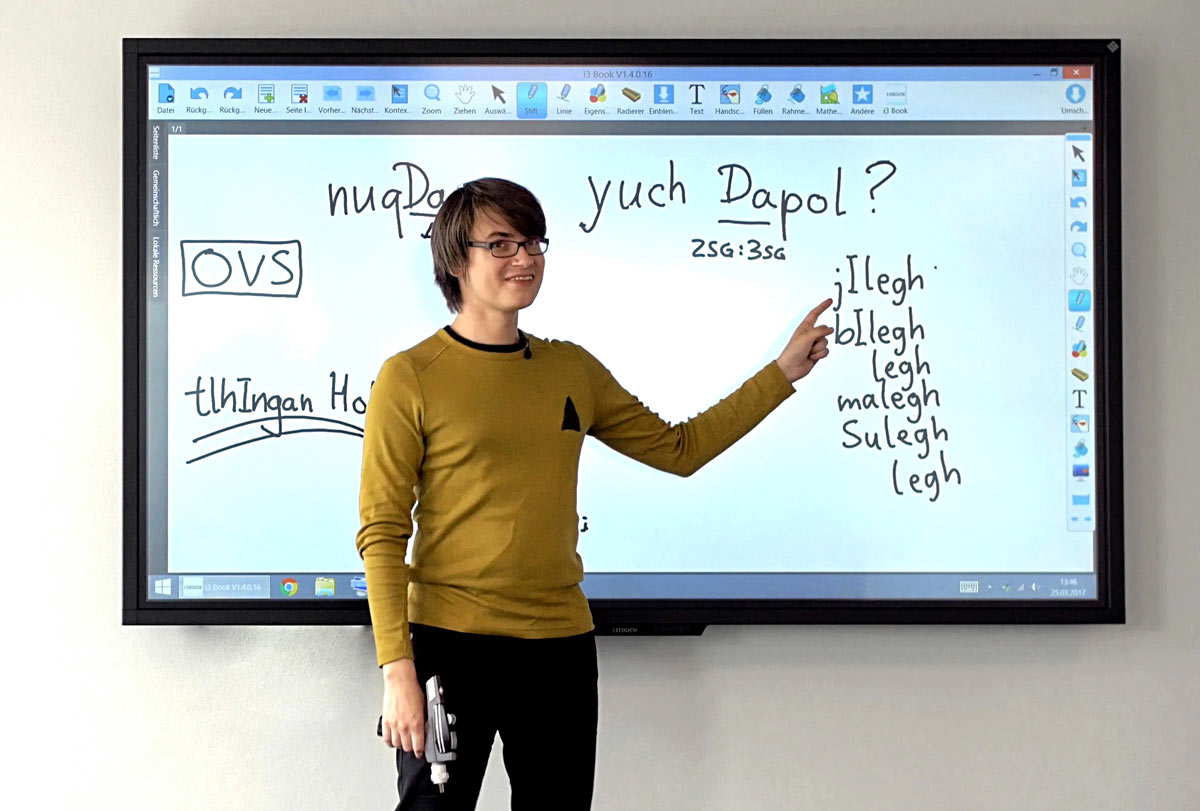 i3 Book V1.4.0.16
Datei Rückg... Rückg... Neue... Seite l... Vorher... Nächst... Kontex... Zoom Ziehen Auswä... Stift Linie Eigens... Radierer Einblen... Text Handsc... Füllen Rahme... Mathe... Andere i3 Book Umsch...
1/1
Seitenliste
Gemeinschaftlich
Lokale Ressourcen
nuqDa yuch Dapol?
2SG:3SG
OVS
jIlegh
bIlegh
legh
tlhIngan Ho
malegh
Sulegh
legh
T
i3 Book V1.4.0.16
13:46
25.03.2017